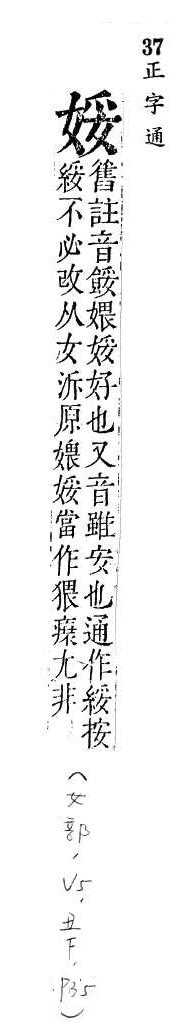 37正字通
婑
舊註音餒婑好也又音雖安也通作綏按
綏不必改从女泝原婑當作猥㾕尢非
(女部,V5,丑下,P35)